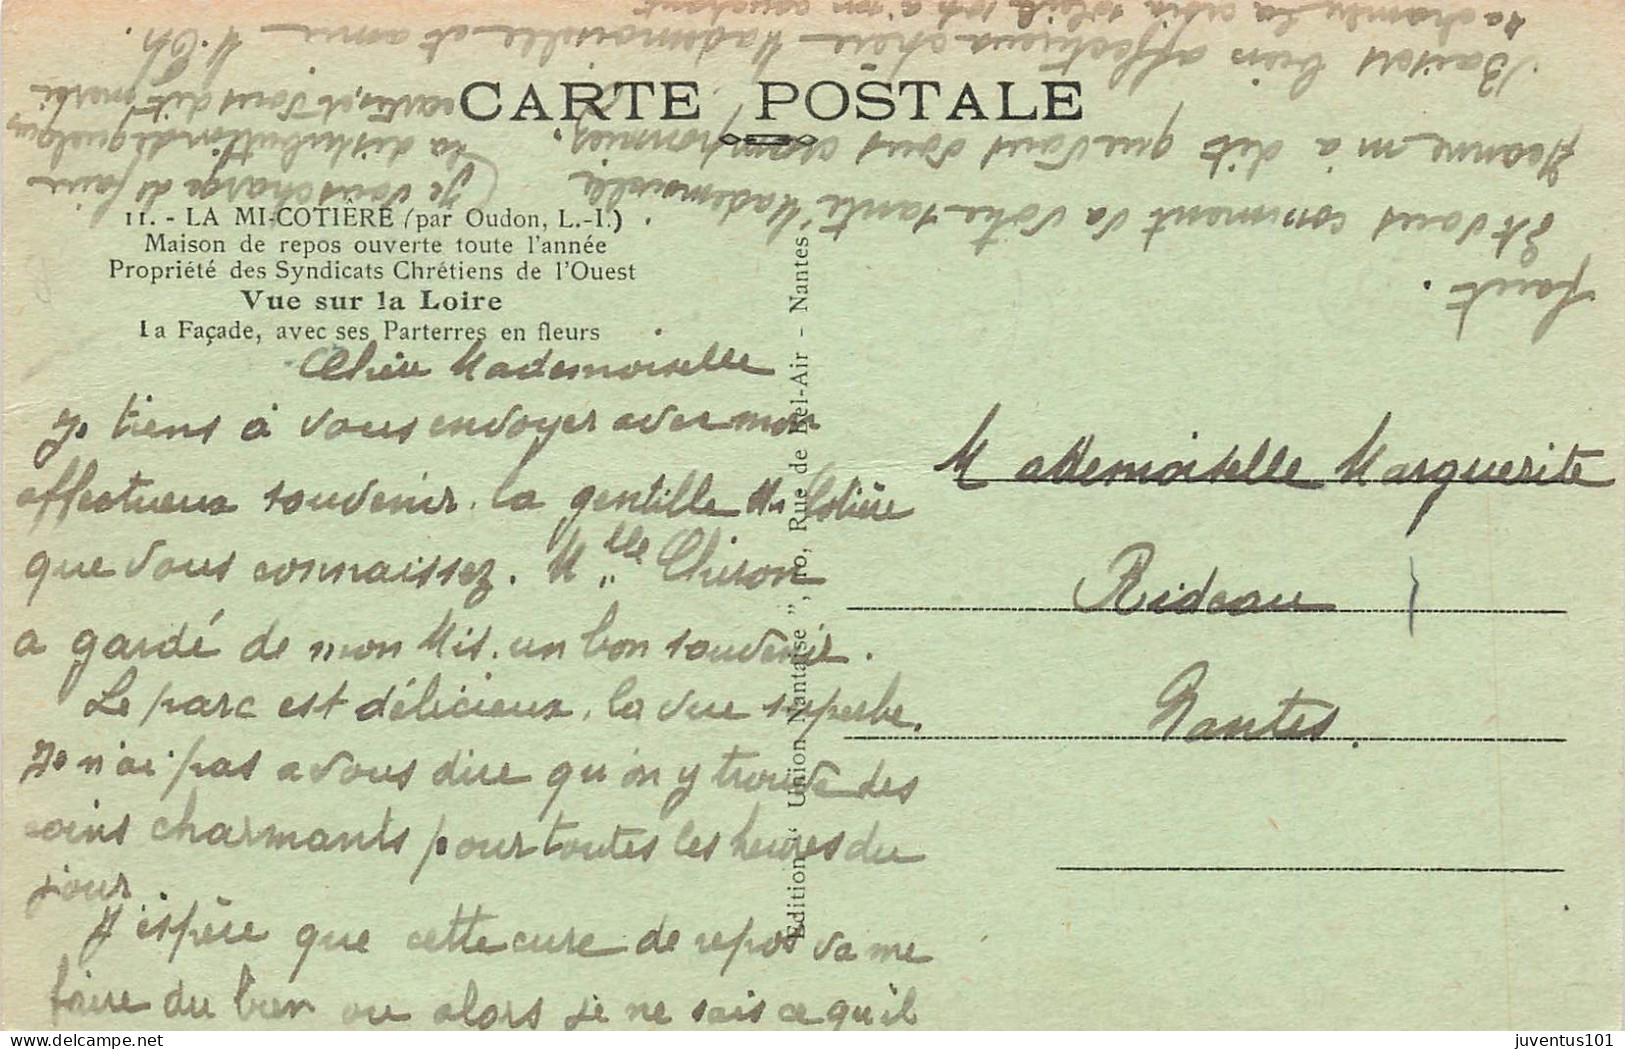 CARTE POSTALE
11. - LA MI-COTIÈRE (par Oudon, L.-I.)
Maison de repos ouverte toute l'année
Propriété des Syndicats Chrétiens de l'Ouest
Vue sur la Loire
La Façade, avec ses Parterres en fleurs
Chère Mademoiselle
Je tiens à vous envoyer avec mon
affectueux souvenir, la gentille Mi Cotière
que vous connaissez. Mlle Chiron
a gardé de mon Mis. un bon souvenir.
Le parc est délicieux, la vue superbe.
Je n'ai pas a vous dire qu'on y trouve des
coins charmants pour toutes les heures du
jour
J'espère que cette cure de repos va me
faire du bien ou alors je ne sais ce qu'il
faut.
Et vous comment va votre santé Mademoiselle
Jeanne m'a dit que vous vous
Baisers bien affectueux chère Mademoiselle et amie
M. Ch.
(Je vous charge de faire
la distribution de quelques
cartes, et vous dit merci
La chambre
Edition " Union Nantaise ", 10, Rue de Bel-Air - Nantes
Mademoiselle Marguerite
Rideau
Nantes.
juventus101